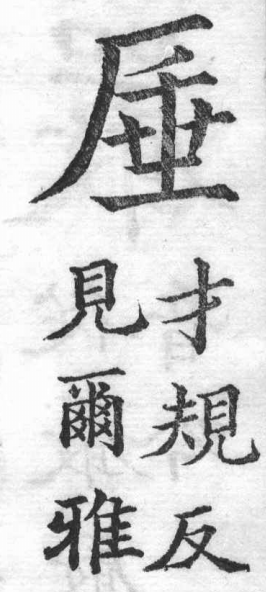 厜
才規反
見爾雅